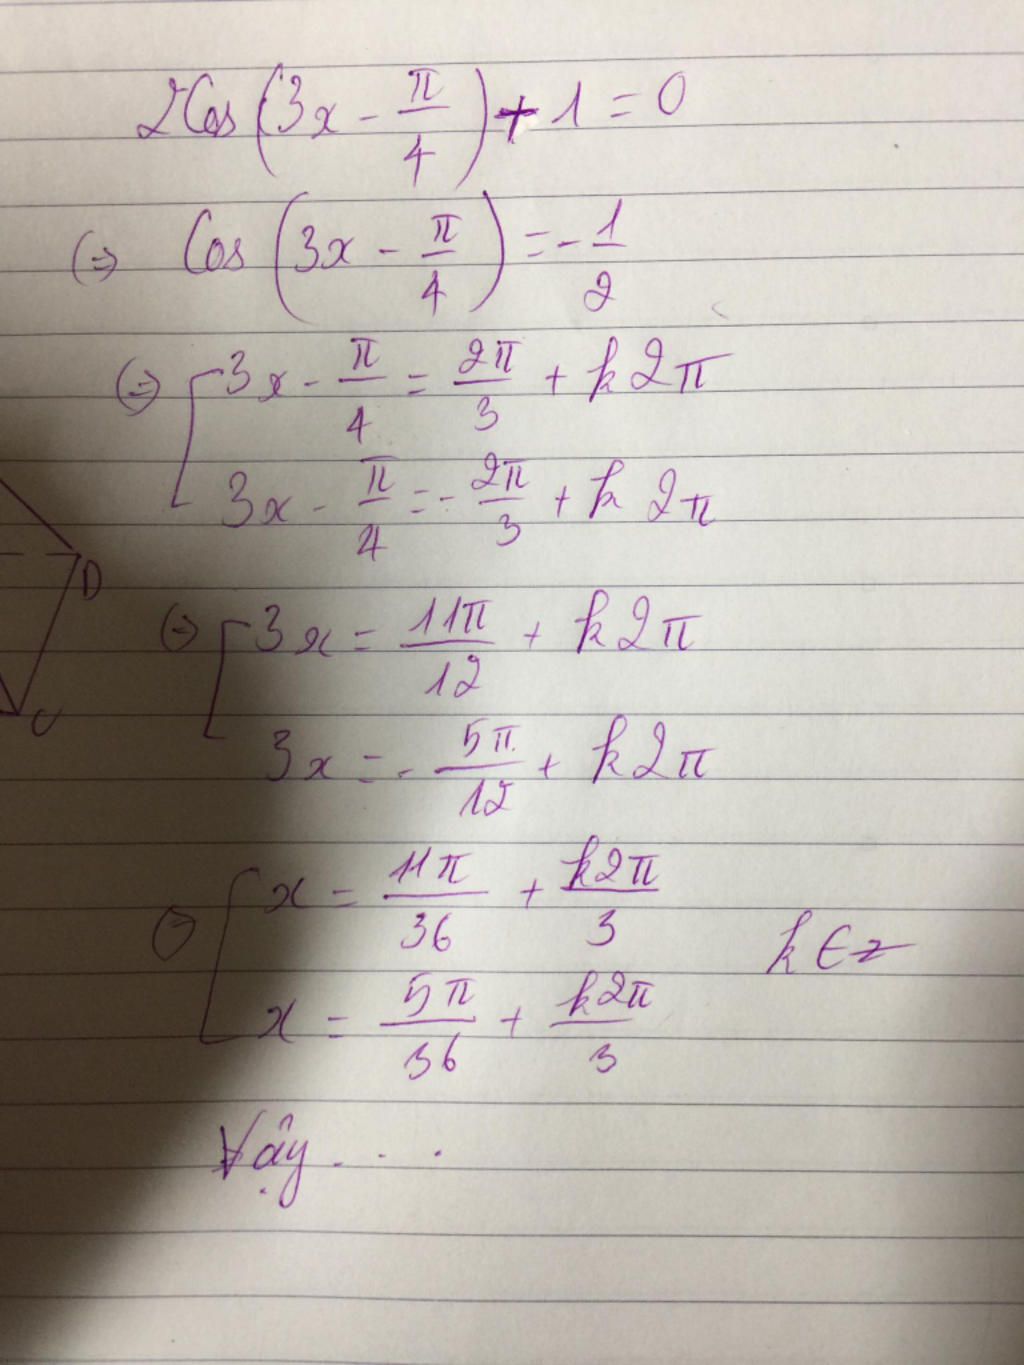 2Cos(3x - π/4) + 1 = 0
(=) Cos(3x - π/4) = - 1/2
(=) [ 3x - π/4 = 2π/3 + k2π
3x - π/4 = - 2π/3 + k2π
(=) [ 3x = 11π/12 + k2π
3x = - 5π/12 + k2π
(=) [ x = 11π/36 + k2π/3 k ∈ z
x = 5π/36 + k2π/3
Vậy . . .
D
C